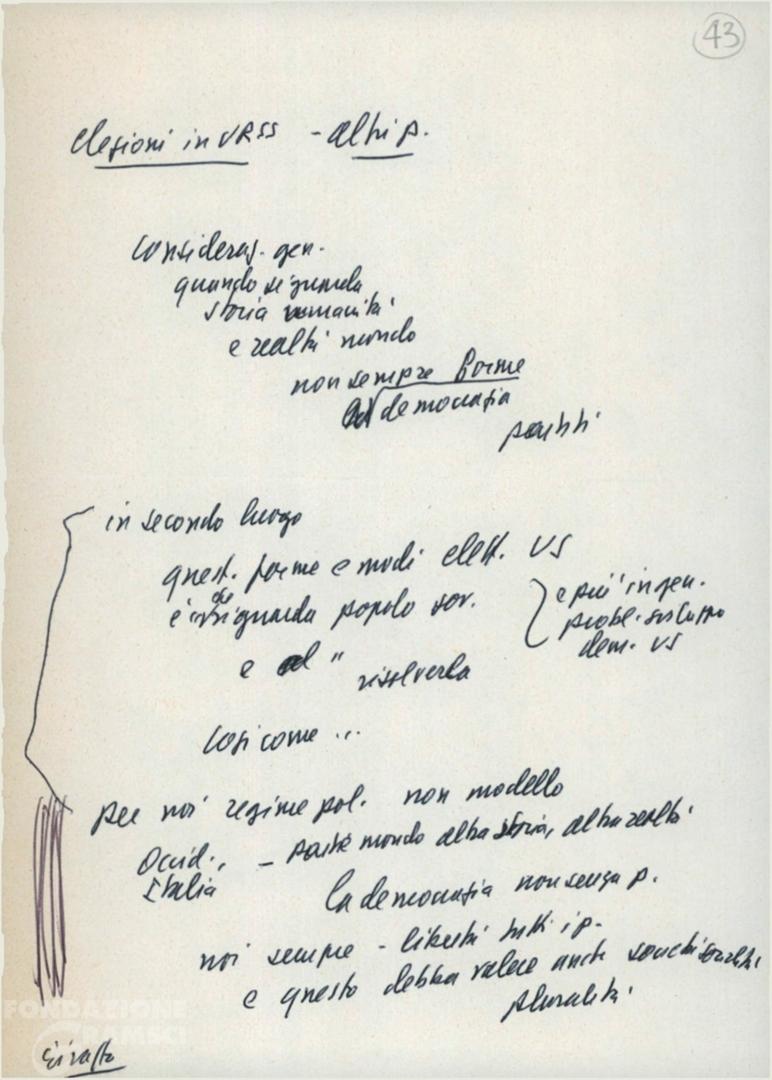 43
Elezioni in URSS - altri p.
Consideraz. gen.
quando si guarda
storia umanità
e realtà mondo
non sempre forme
democrazia
partiti
in secondo luogo
quest. forme e modi elett. US
è che riguarda popolo sov.
e più in gen.
probl. sviluppo
dem. US
e al " risolverla
Così come ...
per noi regime pol. non modello
Occid., - parte mondo altra storia, altra realtà
Italia
la democrazia non senza p.
noi sempre - libertà tutti i p.
e questo debba valere anche
pluralità
FONDAZIONE
GRAMSCI